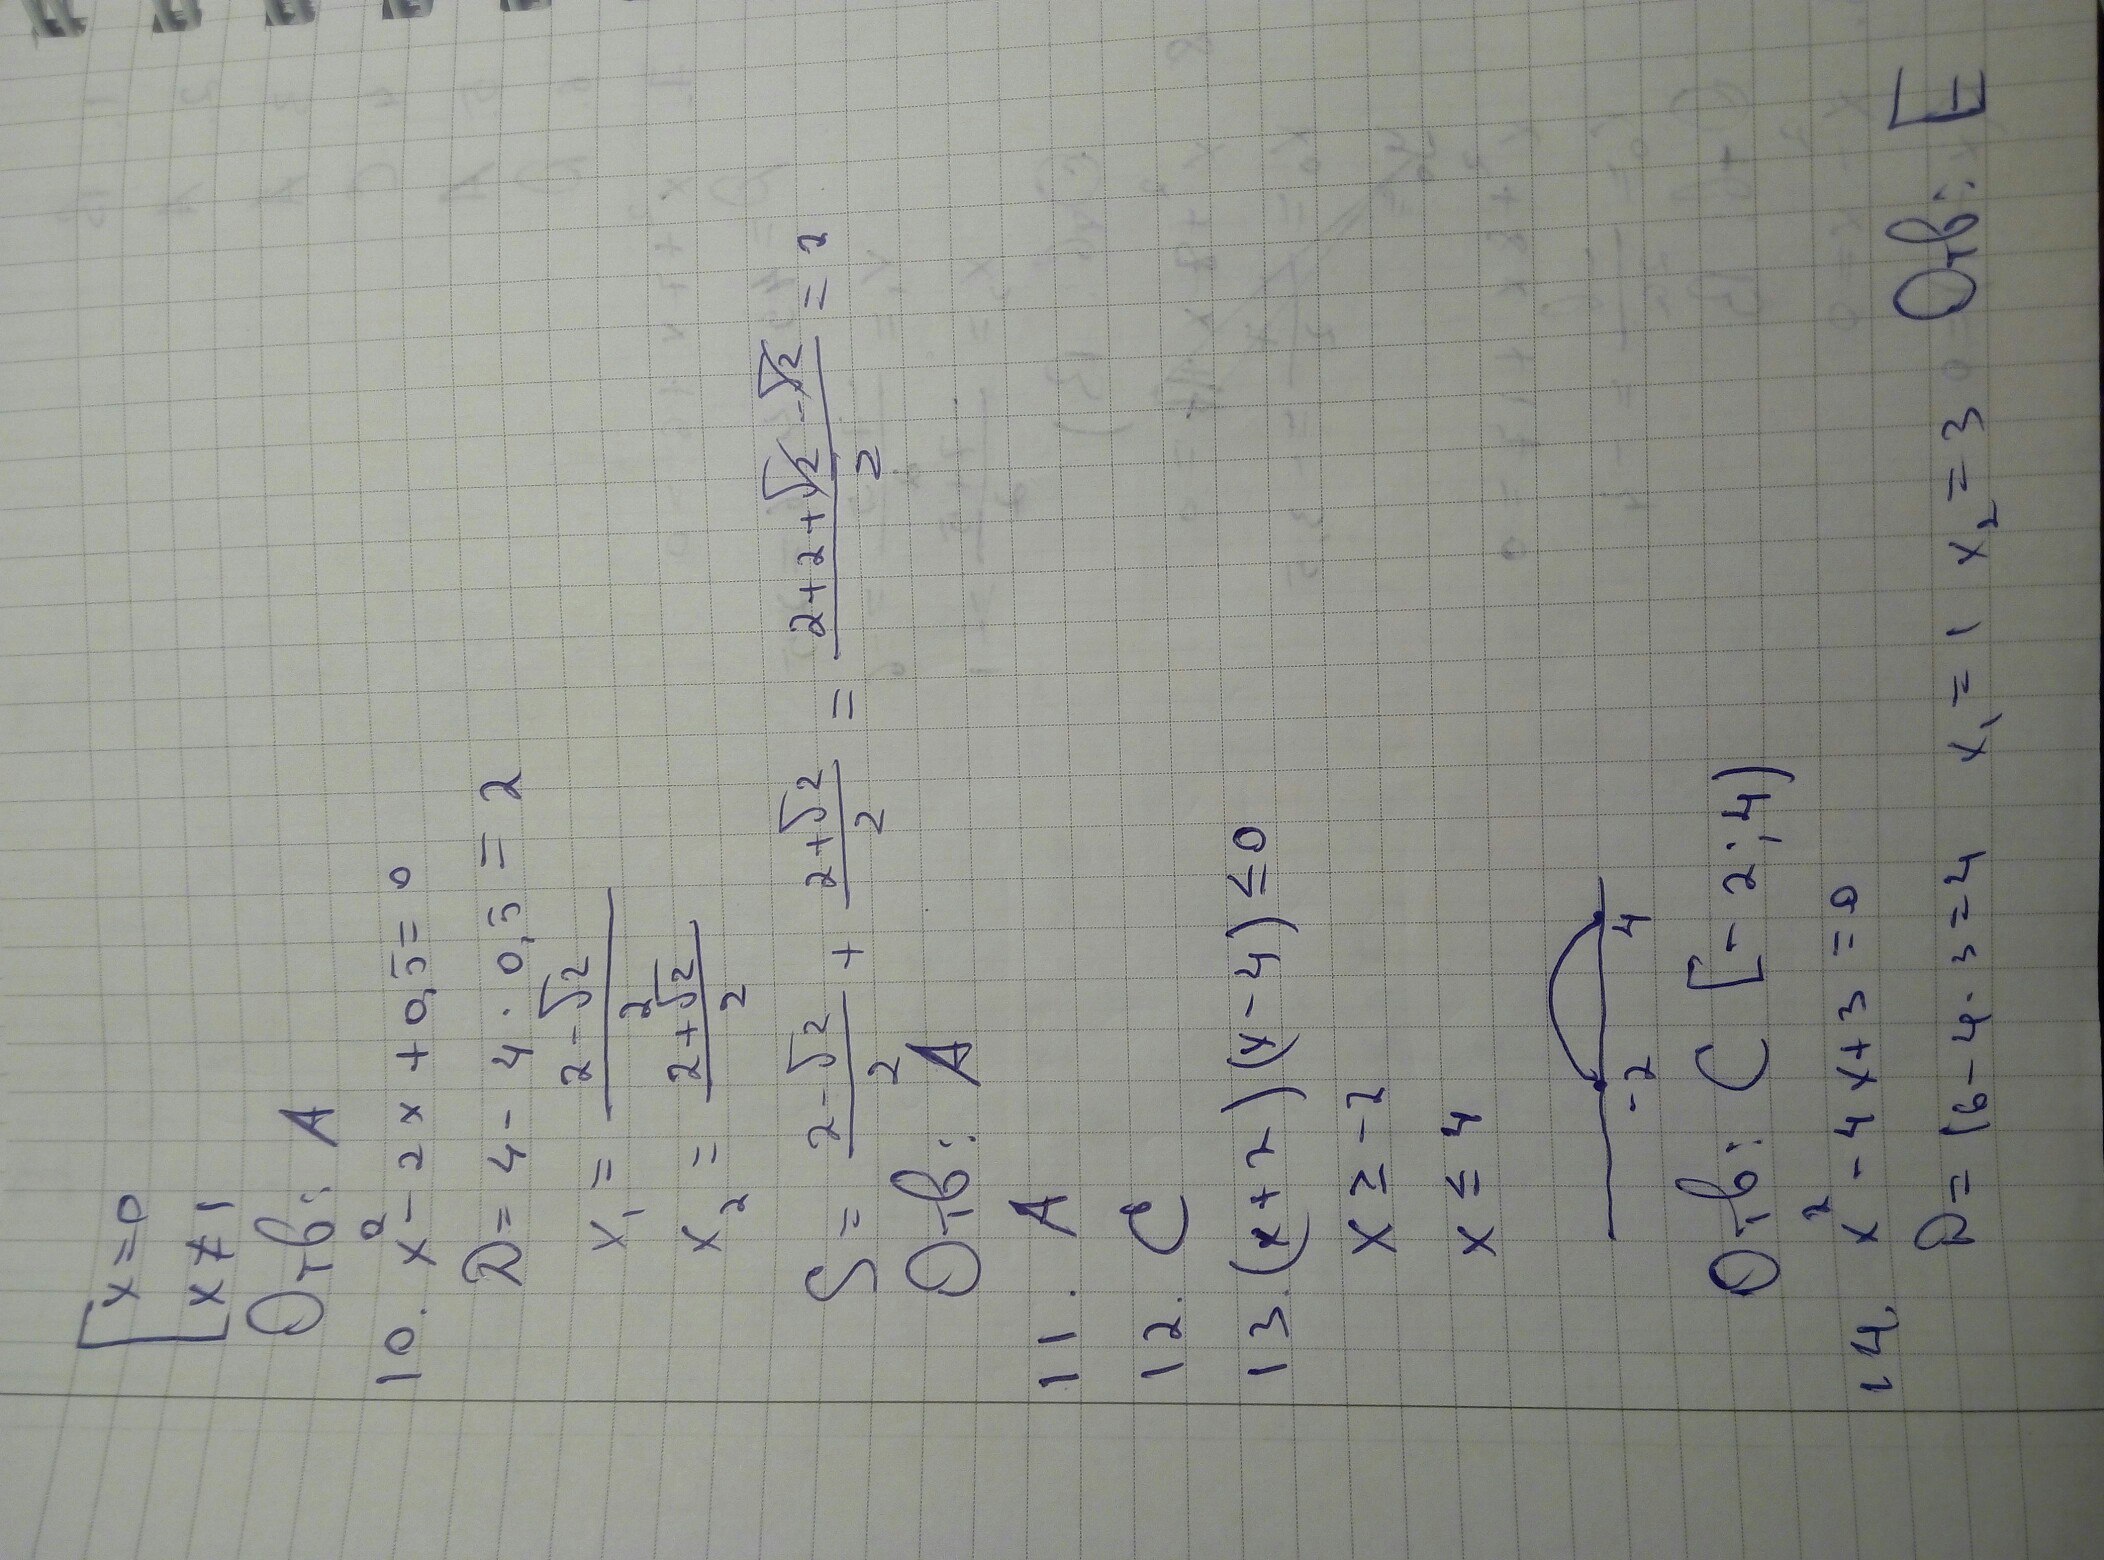 [x=0
[x≠1
Отв: A
10. x²-2x+0,5=0
D=4-4·0,5=2
x₁ = (2-√2)/2
x₂ = (2+√2)/2
S = (2-√2)/2 + (2+√2)/2 = (2+2+√2-√2)/2 = 2
Отв: A
11. A
12. C
13. (x+2)(x-4)≤0
x≥-2
x≤4
-2 4
Отв: C [-2;4)
14. x²-4x+3=0
D=16-4·3=4 x₁=1 x₂=3 Отв: E